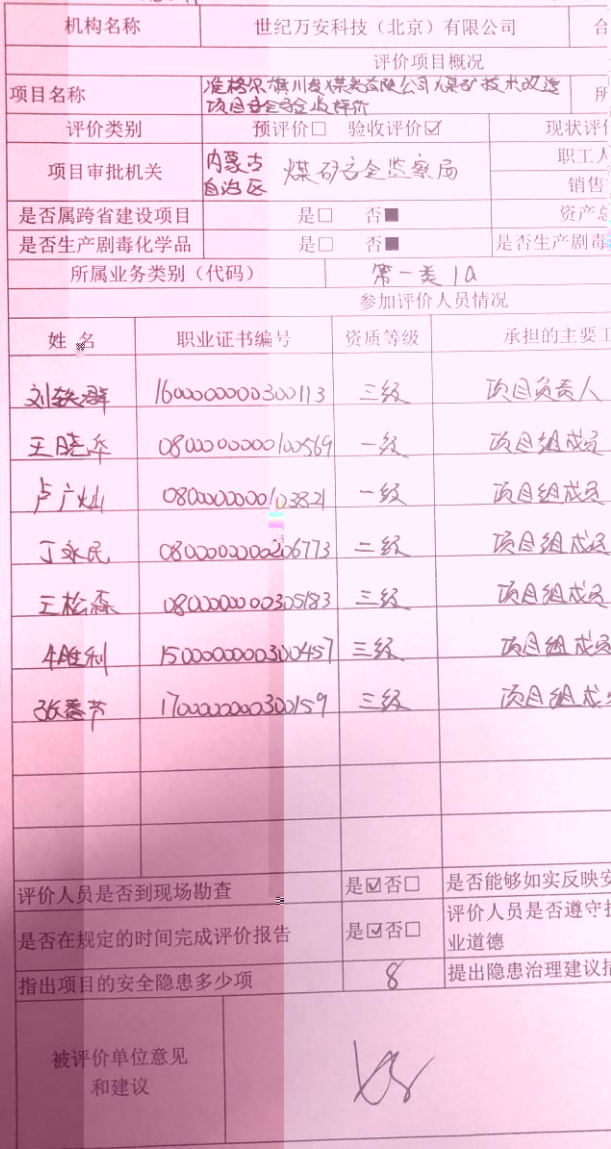 机构名称 世纪万安科技（北京）有限公司 合
评价项目概况
项目名称 准格尔旗川发煤炭有限公司煤矿技术改造 所
项目安全验收评价
评价类别 预评价□ 验收评价☑ 现状评价
项目审批机关 内蒙古自治区 煤矿安全监察局 职工人
销售
是否属跨省建设项目 是□ 否■ 资产总
是否生产剧毒化学品 是□ 否■ 是否生产剧毒
所属业务类别（代码） 第一类 1a
参加评价人员情况
姓 名 职业证书编号 资质等级 承担的主要工
刘轶群 1600000000300113 三级 项目负责人
王晓华 0800000000100569 一级 项目组成员
卢广灿 0800000000103821 一级 项目组成员
丁永民 0800000000206773 二级 项目组成员
王松森 0800000000305183 三级 项目组成员
牛胜利 1500000000300457 三级 项目组成员
张春节 1700000000300159 三级 项目组成员
评价人员是否到现场勘查 是☑否□ 是否能够如实反映安
是否在规定的时间完成评价报告 是☑否□ 评价人员是否遵守
业道德
指出项目的安全隐患多少项 8 提出隐患治理建议措
被评价单位意见
和建议